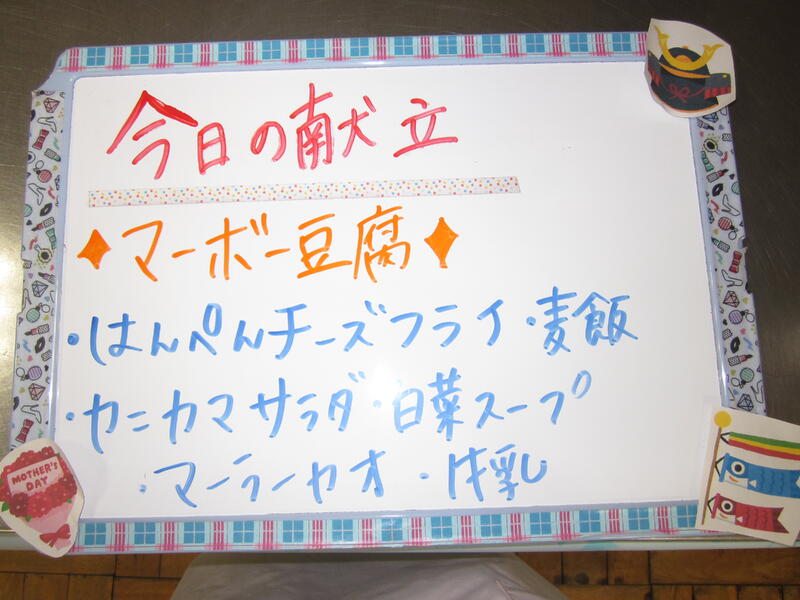 今日の献立
◆マーボー豆腐◆
・はんぺんチーズフライ・麦飯
・カニカマサラダ・白菜スープ
・マーラーカオ・牛乳
MOTHER'S
DAY